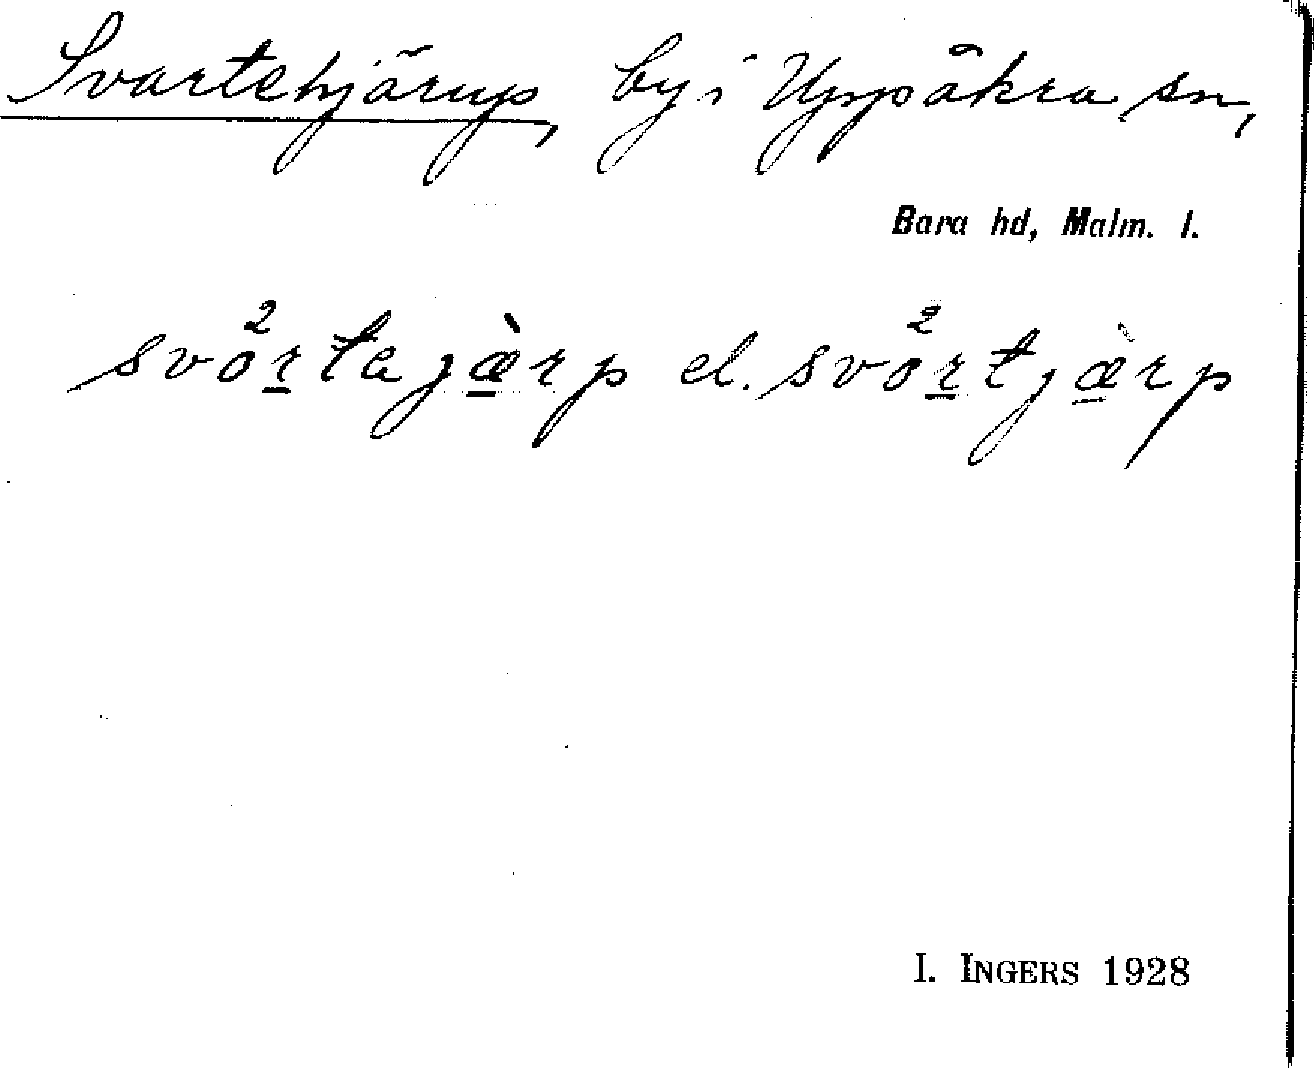 Svartehjärup, by i Uppåkra sn,
Bara hd, Malm. l.
svo²r̲tajæ̲̀rp el. svo²r̲tjæ̲̀rp
I. INGERS 1928